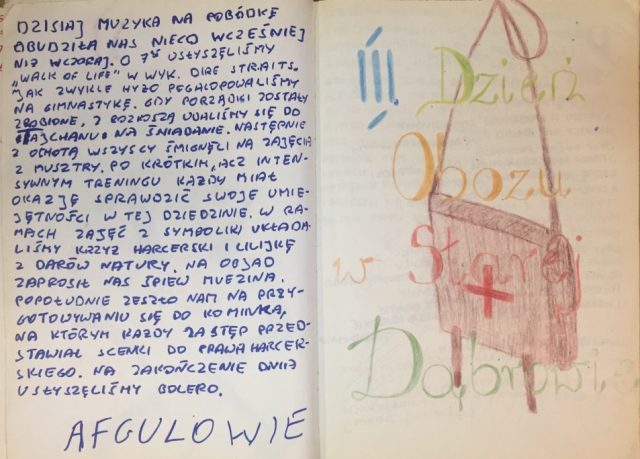 DZISIAJ MUZYKA NA POBÓDKĘ
OBUDZIŁA NAS NIECO WCZEŚNIEJ
NIŻ WCZORAJ. O 7³⁰ USŁYSZĘLIŚMY
„WALK OF LIFE" W WYK. DIRE STRAITS.
JAK ZWYKLE HYŻO POGALOPOWALIŚMY
NA GIMNASTYKĘ. GDY PORZĄDKI ZOSTAŁY
ZROBIONE, Z ROZKOSZĄ UDALIŚMY SIĘ DO
TAJCHANU NA ŚNIADANIE. NASTĘPNIE
Z OCHOTĄ WSZYSCY ŚMIGNĘLI NA ZAJĘCIA
Z MUSZTRY. PO KRÓTKIM, ACZ INTEN-
SYWNYM TRENINGU KAŻDY MIAŁ
OKAZJĘ SPRAWDZIĆ SWOJE UMIE-
JĘTNOŚCI W TEJ DZIEDZINIE. W RA-
MACH ZAJĘĆ Z SYMBOLIKI UKŁADA-
LIŚMY KRZYŻ HARCERSKI I LILIJKĘ
Z DARÓW NATURY. NA OBJAD
ZAPROSIŁ NAS ŚPIEW MUEZINA.
POPOŁUDNIE ZESZŁO NAM NA PRZY-
GOTOWYWANIU SIĘ DO KOMINKA,
NA KTÓRYM KAŻDY ZASTĘP PRZED-
STAWIAŁ SCENKI DO PRAWA HARCER-
SKIEGO. NA ZAKOŃCZENIE DNIA
USŁYSZĘLIŚMY BOLERO.
AFGULOWIE
III Dzień
Obozu
w Starej
Dąbrowie